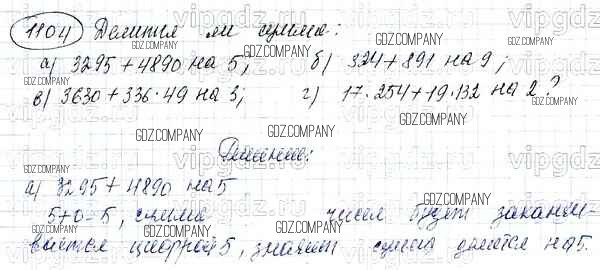 1104 Делится ли сумма:
а) 3295+4890 на 5; б) 324+891 на 9;
в) 3630+336·49 на 3; г) 17·254+19·132 на 2?
Решение:
а) 3295+4890 на 5
5+0=5, сумма чисел будет заканчи-
ваться цифрой 5, значит сумма делится на 5.